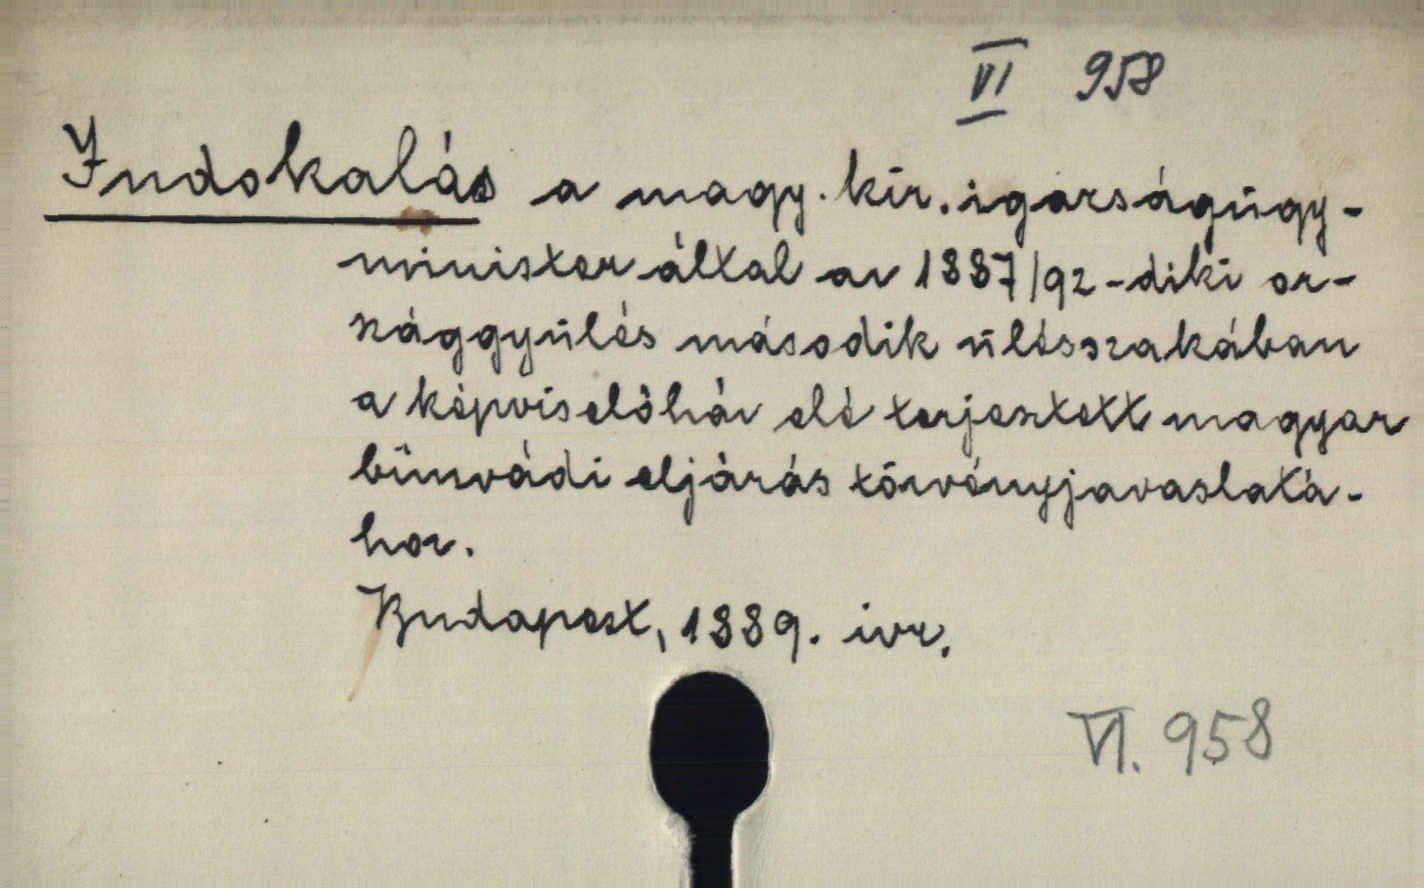 VI 958
Indokalás a magy. kir. igazságügy-
minister által az 1887/92-diki or-
szággyülés második ülésszakában
a képviselőház elé terjesztett magyar
bűnvádi eljárás törvényjavaslatá-
hoz.
Budapest, 1889. ivr.
VI. 958